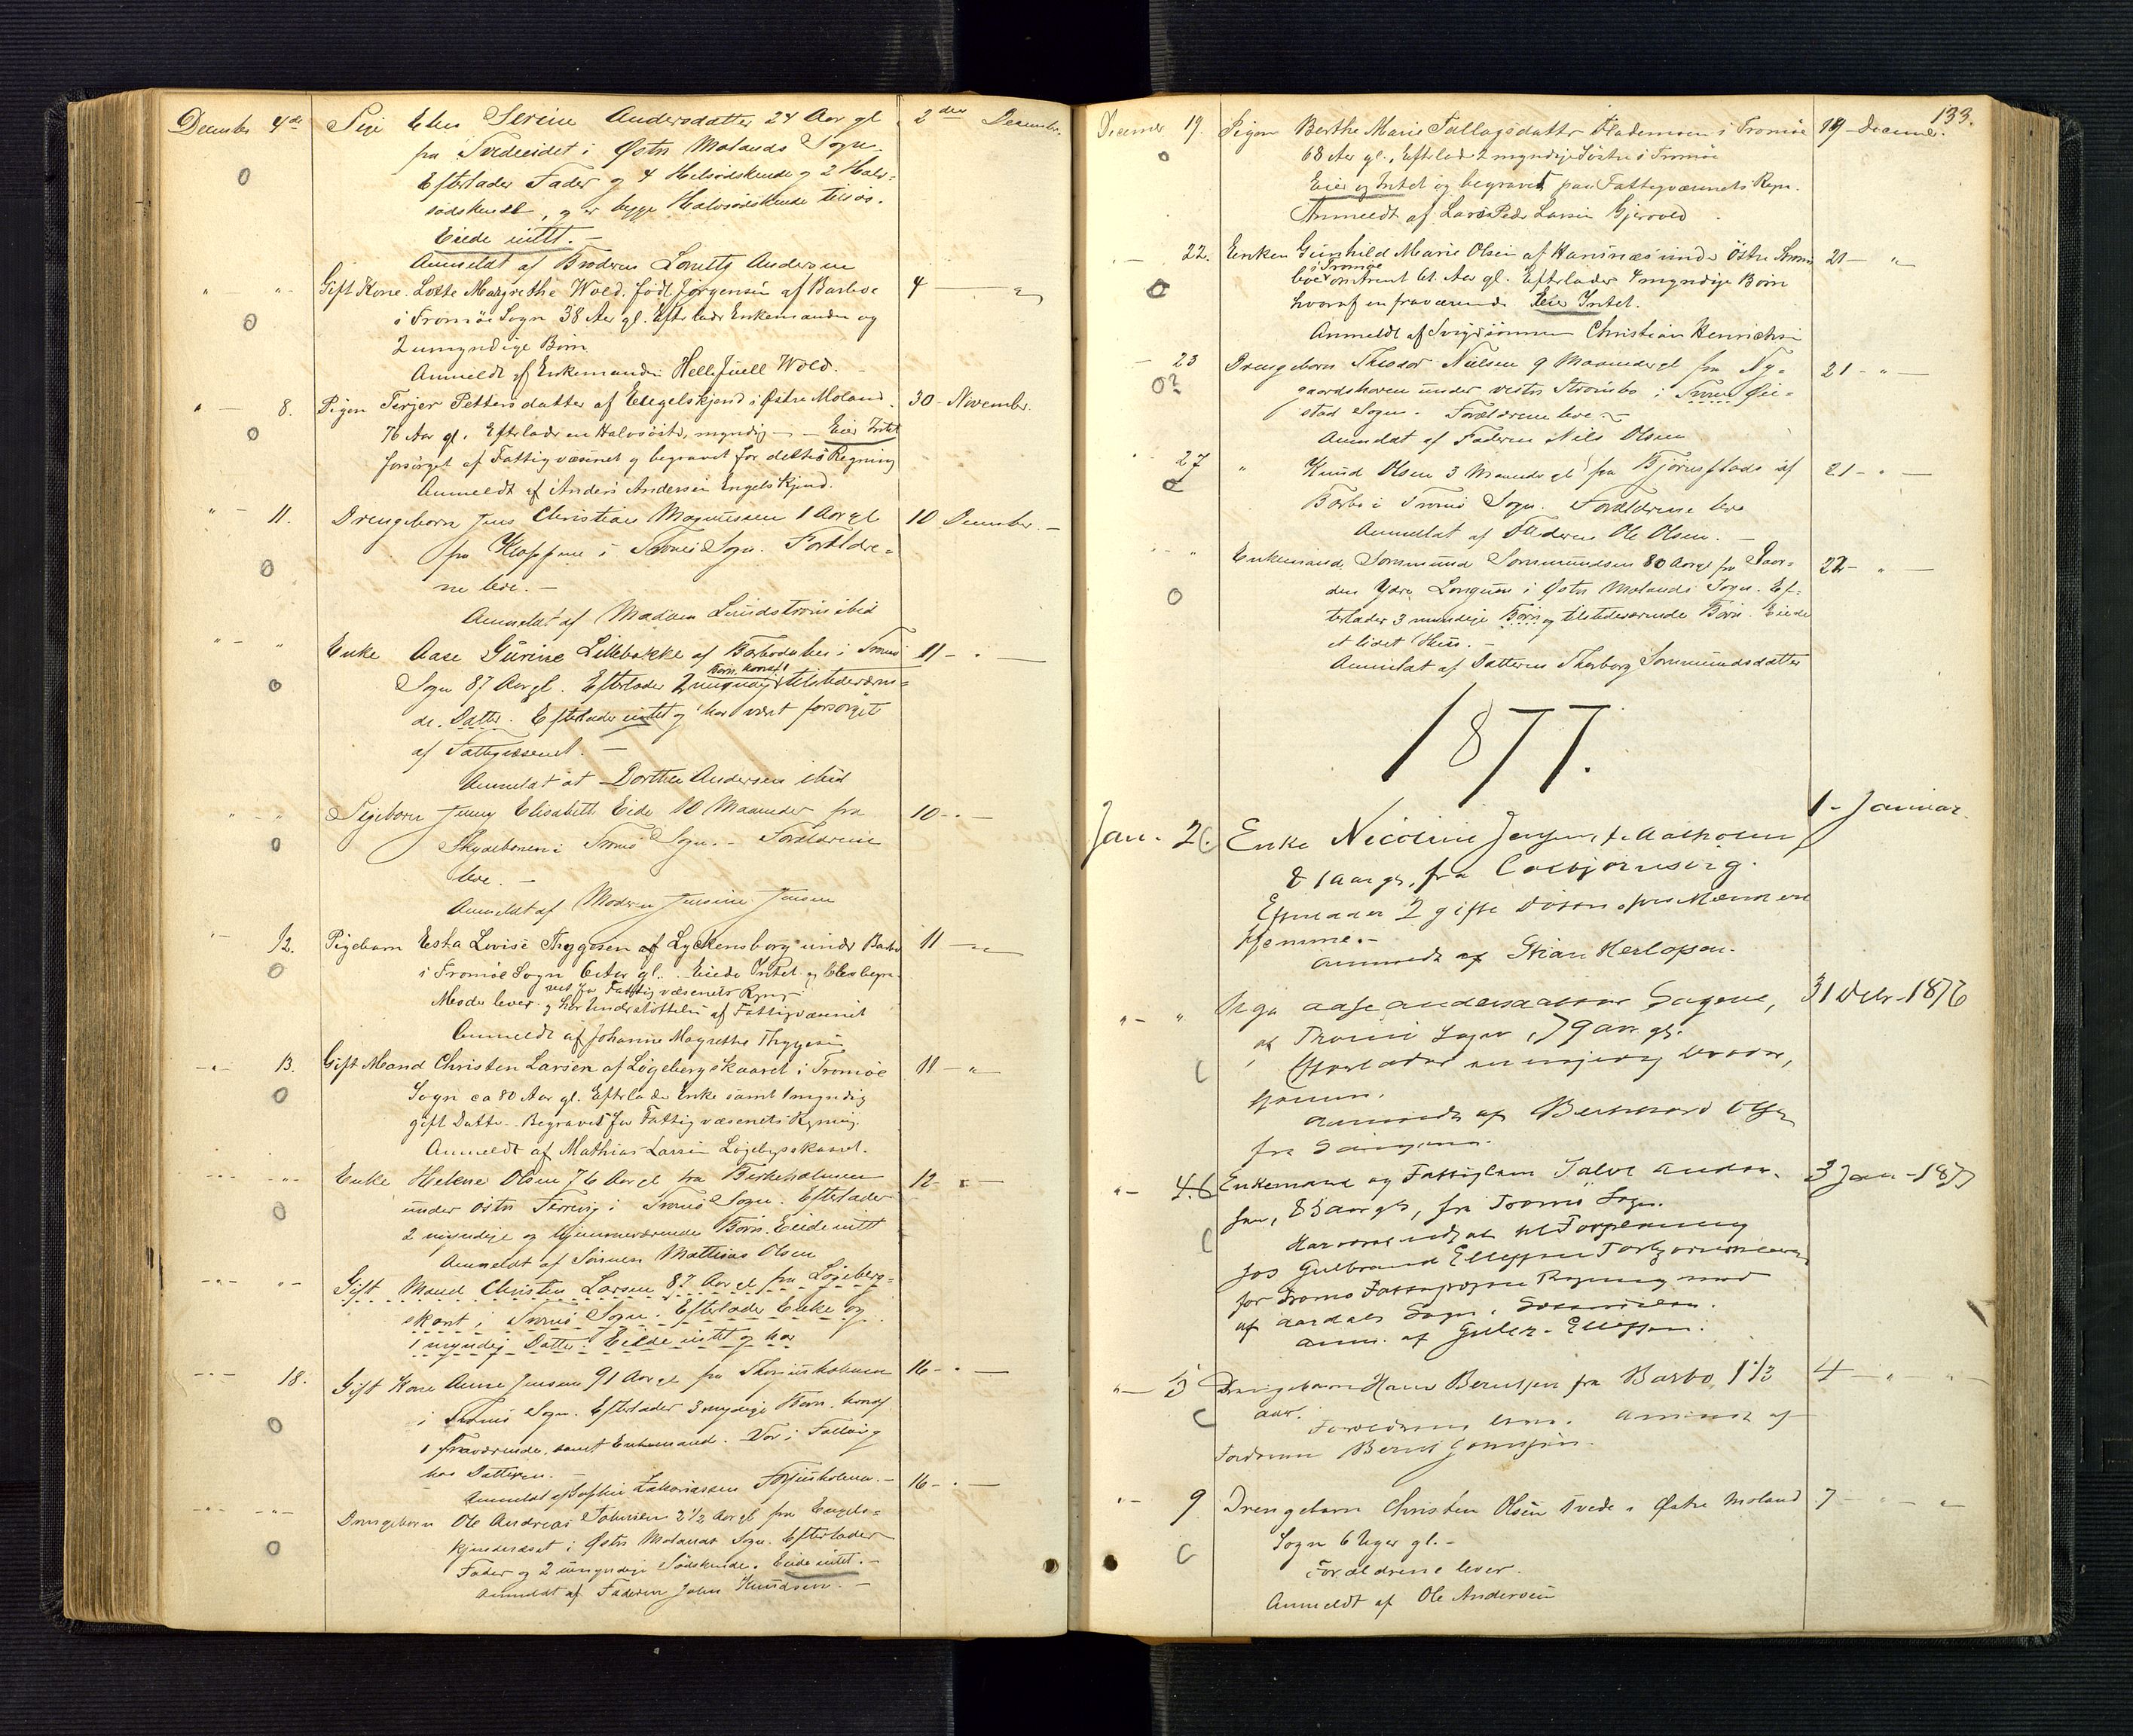 December 4de Pige Elen Serine Andersdatter 24 Aar gl 2den December.
fra Tvedeeidet i Østre Molands Sogn.
Efterlader Fader og 4 Helsødskende og 2 Halv=
sødskende, og er begge Halvsødskende tilsøs.
Eiede intet. –
Anmeldt af Broderen Andersen
" - " - Gift Kone Lotte Margrethe Wold, født Jørgensen af Barboe 4 — "
i Tromøe Sogn 38 Aar gl. Efterlader Enkemanden og
2 umyndige Børn
Anmeldt af Enkemanden Helle Juell Wold.
" - 8. Pigen Terjer Pettersdatter af Engelskjend i Østre Moland 30 - November.
76 Aar gl. Efterlader en Halvsøster, myndig — Eier Intet
forsørget af Fattigvæsenet og begravet for dettes Regning
Anmeldt af Anders Andersen Engelskjend.
" - 11. Drengebarn Jens Christian Magnussen 1 Aar gl 10 December. –
fra Kloppene i Tromø Sogn. Forældre=
ne leve. –
Anmeldt af Madam Lundstrøm ibid
" - " Enke Aase Gurine Lillebakke af Barbodalen i Tromø 11 - " —
Børn, hvoraf 1
Sogn 87 Aar gl. Efterlader 2 myndige tilstedeværen=
de Datter. Efterlader intet og har været forsørget
af Fattigvæsenet. –
Anmeldt at Dorthea Andersen ibid
" - " Pigebarn Jenny Elisabeth Eide 10 Maaneder fra 10 - " —
Skydebanen i Tromø Sogn. – Forældrene
leve. –
Anmeldt af Moderen Jensine Jensen
" - 12. Pigebarn Esta Lovise Thygesen af Lyckensborg under Barbo 11 — "
i Tromøe Sogn 6 Aar gl. Eiede Intet og blev begra-
vet for Fattigvæsenets Regning
Moder lever og har Understøttelse af Fattigvæsenet
Anmeldt af Johanne Magrethe Thygesen
" - 13. Gift Mand Christen Larsen af Løgebergskaaret i Tromøe 11 — "
Sogn ca 80 Aar gl. Efterlader Enke samt 1 myndig
gift Datter. Begravet for Fattigvæsenets Regning.
Anmeldt af Mathias Larsen Løgebergskaaret.
" - " Enke Helene Olsen 76 Aar gl fra Birkeholmen 12 - " —
under østre i Tromø Sogn. Efterlader
2 myndige og hjemmeværende Børn. Eiede intet
Anmeldt af Sønnen Mathias Olsen
" - " Gift Mand Christen Larsen 87 Aar gl fra Løgeberg=
skart i Tromø Sogn. Efterlader Enke og
1 myndig Datter. Eiede intet og har
" - 18. Gift Kone Anne Jensen 91 Aar gl fra Thorjusholmen 16 - " —
i Tromø Sogn. Efterlader 3 myndige Børn, hvoraf
1 fraværende, samt Enkemand. Var i Fattig
hos Datteren. –
Anmeldt af Sophie Zakariassen Torjusholmen. – 16 - " —
" - " Drengebarn Ole Andreas Johnsen 2 1/2 Aar gl fra Engels=
kjendæset i Østre Molands Sogn. Efterlader
Fader og 2 umyndige Sødskende. Eiede intet. –
Anmeldt af Faderen John Knudsen. –
133.
December 19. Pigen Berthe Marie Tallagsdatter i Tromøe 19 December.
68 Aar gl., Efterlader 2 myndige Søstre i Tromøe
Eier og Intet og begravet paa Fattigvæsenets Regn.
Anmeldt af Lars Peder Larsen Gjervold
" - 22. Enken Gunhild Marie Olsen af Hansnæs under Østre Strømsbo 21 — "
i Tromøe
omtrent 61 Aar gl. Efterlader 4 myndige Børn
hvoraf en fraværende Eier Intet.
Anmeldt af Svigersønnen Christian Henrichsen
" - 23 Drengebarn Theodor Nielsen 9 Maaneder gl fra Ny= 21 - " —
gaardshaven under vestre Strømsbo i Tromø Øie=
stad Sogn. Forældrene leve –
Anmeldt af Faderen Niels Olsen
" - 27 " Knud Olsen 3 Maaneder gl fra Bjørnsplads af 21 - " —
Barbo i Tromø Sogn. Forældrene leve
Anmeldt af Faderen Ole Olsen. –
" - " Enkemand Sormmund Sormmundsen 80 Aar gl fra Gaar= 22 - " —
den Ydre Longum i Østre Molands Sogn. Ef=
terlader 3 myndige Børn og tilstedeværende Børn. Eiede
et lidet Huus. –
Anmeldt af Datteren Thorborg Sormmundsdatter
1877.
Jan. 2. Enke Nicoline Jensen, f. Aalholm 1 - Januar.
81 aar gl, fra Colbjørnsvig.
Efterlader 2 gifte Døtre, hvis Mænd ere
hjemme. –
Anmeldt af Stian Herlofsen.
" - " Pige Aase Andersdatter Gagene, 31 Decbr. 1876
af Tromø Sogn, 79 aar gl.
Efterlader en myndig Broder,
hjemme.
Anmeldt af Bernhard Olsen
fra
" - 4. Enkemand og Fattiglem Salve Ander- 3 Jan - 1877
sen, 85 aar gl, fra Tromø Sogn.
Har været udsat til Forpleining
hos Gulbrand Ellefsen
for Tromø Fattigvæsens Regning
af Aardals Sogn i Sætersdalen.
Anm. af Gulbr. Ellefsen.
" - 5 Drengebarn Hans Berntsen fra Barbo, 1 1/3 4 — " - "
aar.
Forældrene leve. Anmeldt af
Faderen Bernt
" - 9. Drengebarn Christen Olsen Tvede i Østre Moland 7 — " - "
Sogn 6 Uger gl. –
Forældrene lever.
Anmeldt af Ole Andersen